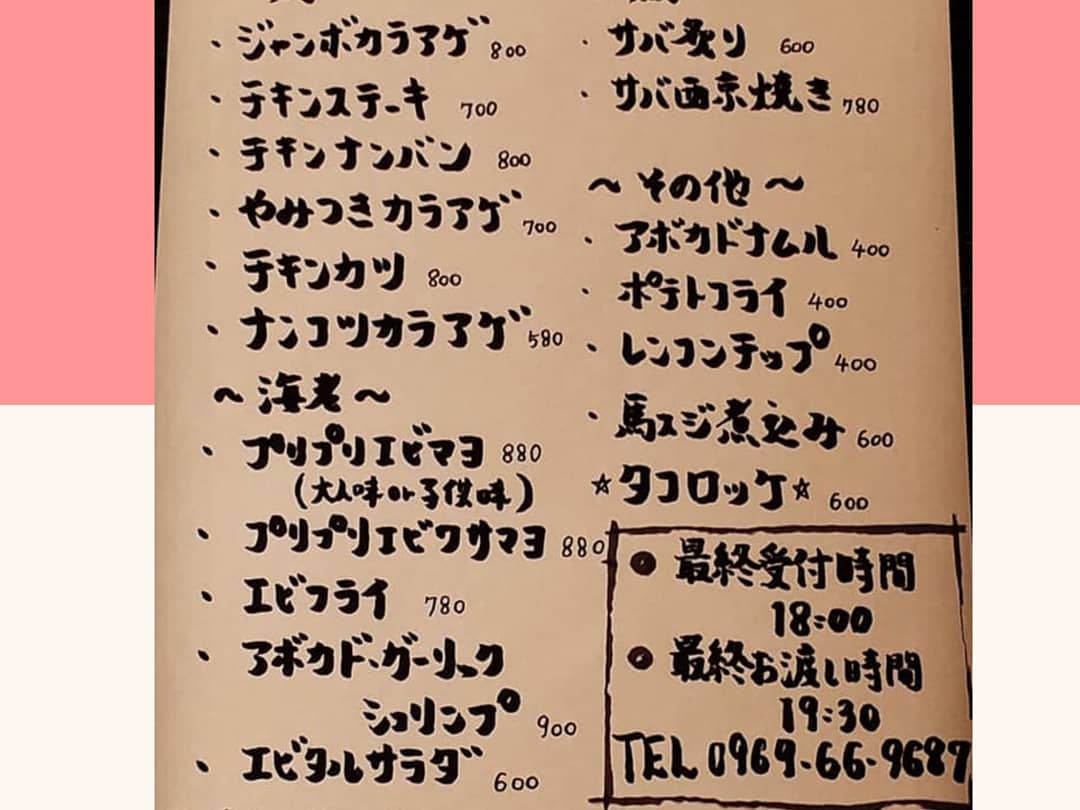 ・ジャンボカラアゲ 800
・チキンステーキ 700
・チキンナンバン 800
・やみつきカラアゲ 700
・チキンカツ 800
・ナンコツカラアゲ 580
～海老～
・プリプリエビマヨ 880
(大人味or子供味)
・プリプリエビワサマヨ 880
・エビフライ 780
・アボカド・ガーリック
シュリンプ 900
・エビタルサラダ 600
・サバ炙り 600
・サバ西京焼き 780
～その他～
・アボカドナムル 400
・ポテトフライ 400
・レンコンチップ 400
・馬スジ煮込み 600
☆タコロッケ☆ 600
●最終受付時間
18:00
●最終お渡し時間
19:30
TEL 0969-66-9687